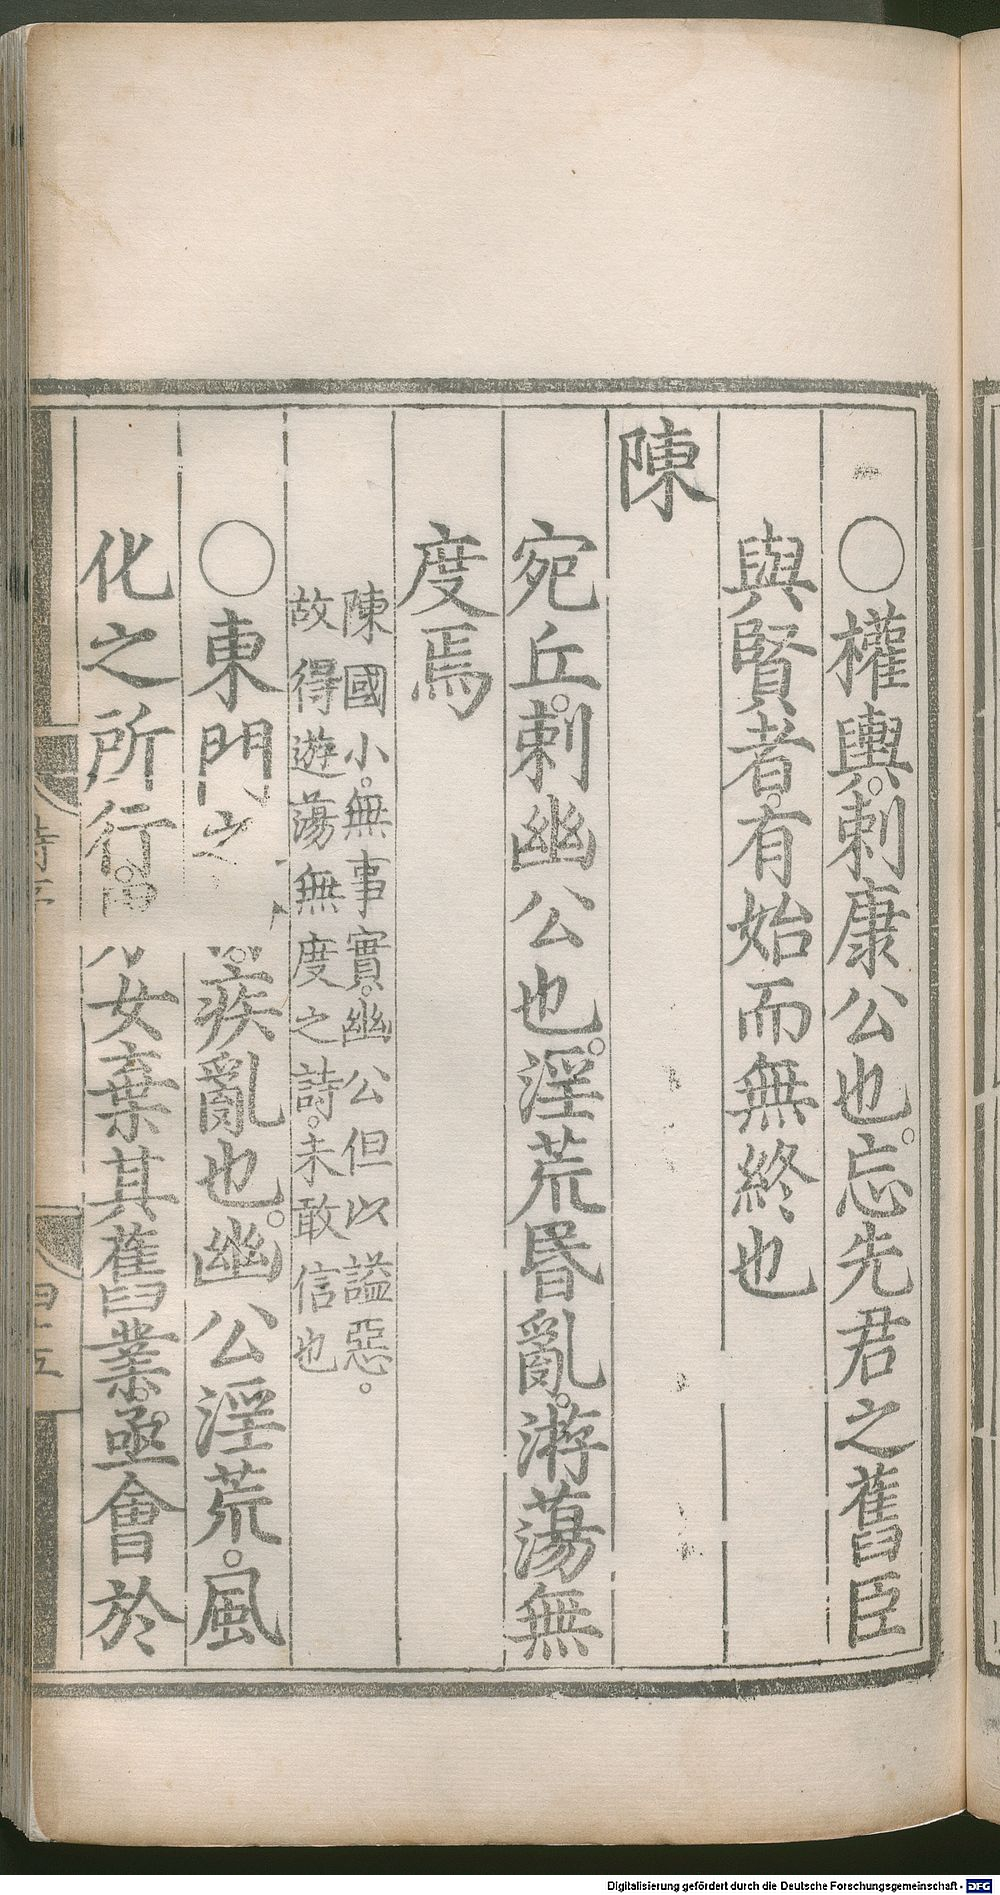 ○權輿。刺康公也。忘先君之舊臣
與賢者。有始而無終也
陳
宛丘。刺幽公也。淫荒昬亂。游蕩無
度焉
陳國小。無事實。幽公但以謚惡。
故得遊蕩無度之詩。未敢信也
○東門之 。疾亂也。幽公淫荒。風
化之所行。 女棄其舊業。亟會於
詩序
四十五
Digitalisierung gefördert durch die Deutsche Forschungsgemeinschaft - DFG